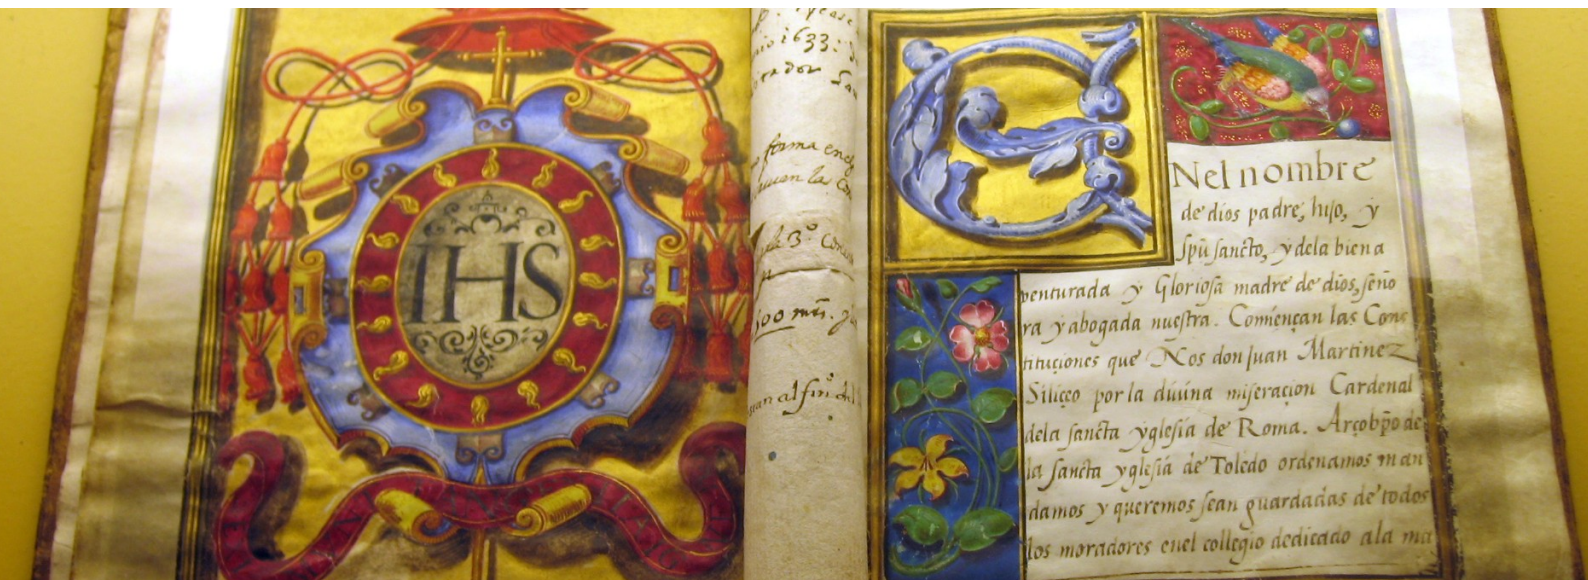 IHS
1633
forma en
las
3º Con
500 mrs.
al fin del
E
Nel nombre
de dios padre, hijo, y
spũ sancto, y dela biena
venturada y Gloriosa madre de dios, seño
ra y abogada nuestra. Comiençan las Cons
tituçiones que Nos don Juan Martinez
Siliçeo por la diuina miseraçion Cardenal
dela sancta yglesia de Roma. Arçobp̃o de
la sancta yglesia de Toledo ordenamos man
damos y queremos sean guardadas de todos
los moradores enel collegio dedicado ala ma